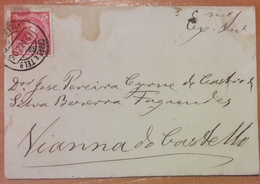 Ex.mo Snr
Dor José Pereira Cyrne de Castro
Silva Bezerra Fagundes
Vianna do Castello